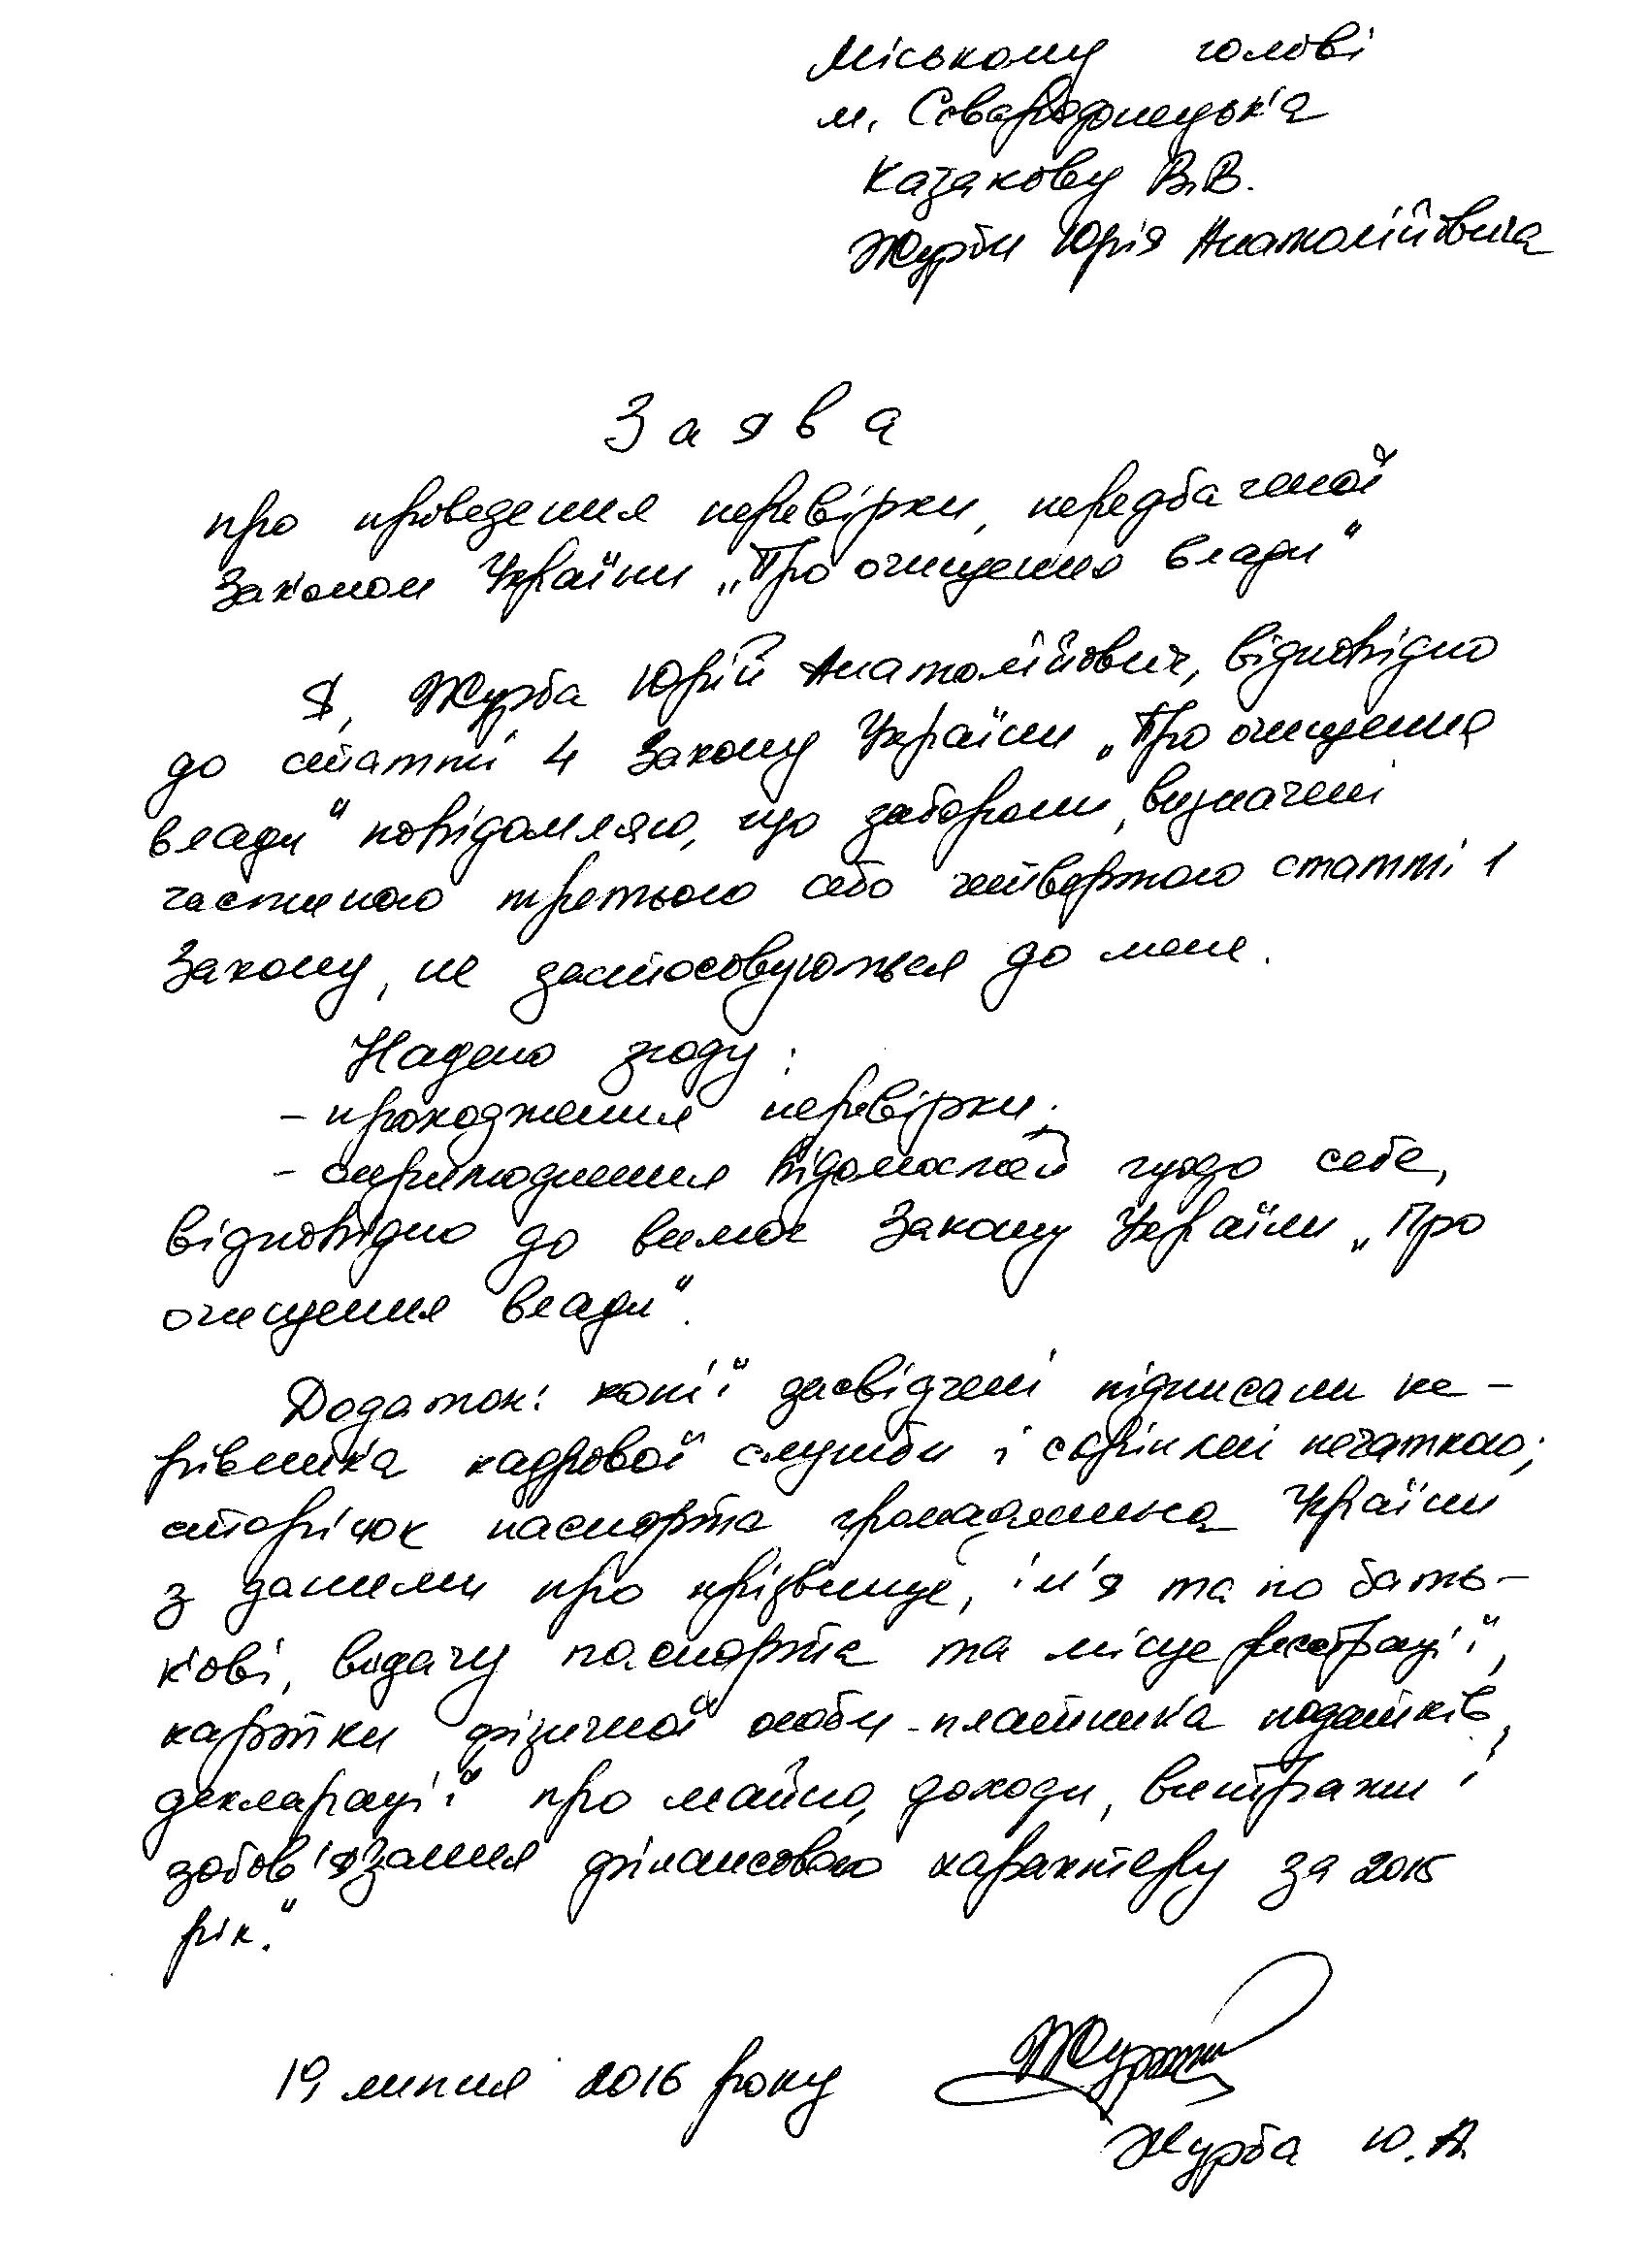 Міському голові
м. Сєвародонецька
Казакову В.В.
Журби Юрія Анатолійовича
Заява
про проведення перевірки, передбаченої
Законом України „Про очищення влади"
Я, Журба Юрій Анатолійович, відповідно
до статті 4 Закону України „Про очищення
влади" повідомляю, що заборони, визначені
частиною третьою або четвертою статті 1
Закону, не застосовуються до мене.
Надаю згоду:
- проходження перевірки;
- оприлюднення відомостей щодо себе,
відповідно до вимог Закону України „Про
очищення влади".
Додаток: копії засвідчені підписами ке-
рівника кадрової служби і скріплені печаткою;
сторінок паспорта громадянина України
з даними про прізвище, ім'я та по бать-
кові, видачу паспорта та місце реєстрації,
картки фізичної особи-платника податків,
декларації про майно, доходи, витрати і
зобов'язання фінансового характеру за 2015
рік."
19 липня 2016 року
Журба Ю.А.